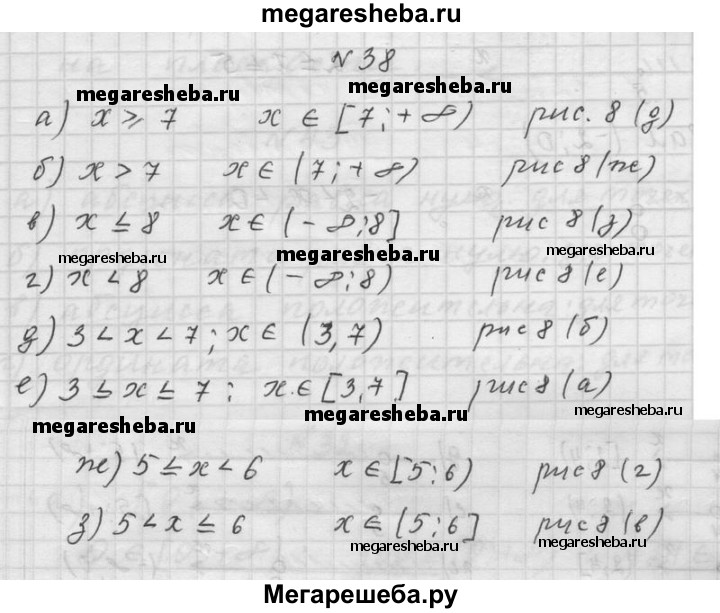 megaresheba.ru
N 38
megaresheba.ru megaresheba.ru
а) x ⩾ 7 x ∈ [7; +∞) рис. 8 (д)
б) x > 7 x ∈ (7; +∞) рис 8 (ж)
в) x ≤ 8 x ∈ (-∞; 8] рис 8 (з)
megaresheba.ru megaresheba.ru megaresheba.ru
г) x < 8 x ∈ (-∞; 8) рис 8 (е)
д) 3 < x < 7; x ∈ (3, 7) рис 8 (б)
е) 3 ≤ x ≤ 7; x ∈ [3, 7] рис 8 (а)
megaresheba.ru megaresheba.ru megaresheba.ru
ж) 5 ≤ x < 6 x ∈ [5; 6) рис 8 (г)
з) 5 < x ≤ 6 x ∈ (5; 6] рис 8 (в)
megaresheba.ru megaresheba.ru
Мегарешеба.ру